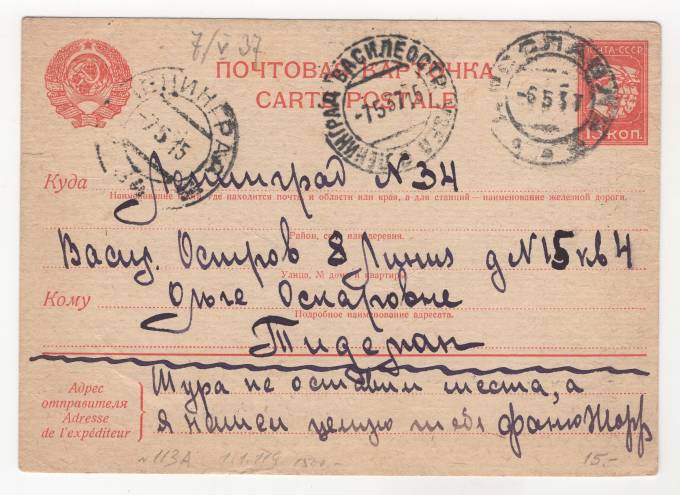 7/V 37
ПОЧТОВАЯ КАРТОЧКА
CARTE POSTALE
ПОЧТА СССР
15 КОП.
ЛЕНИНГРАД ВАСИЛЕОСТР.
-7.5.37.15
-6.5.37
ЛЕНИНГРАД
-7.5.15
Куда Ленинград N 34
Наименование места, где находится почта, и области или края, а для станций — наименование железной дороги.
Район, село или деревня.
Васил. Остров 8 Линия д N 15 кв 4
Улица, № дома и квартиры
Кому Ольге Оскаровне
Подробное наименование адресата.
Тидеман
Адрес
отправителя
Adresse
de l'expéditeur
Шура не оставил места, а
я нашел целую
№ 113А 1.1.119 15.-